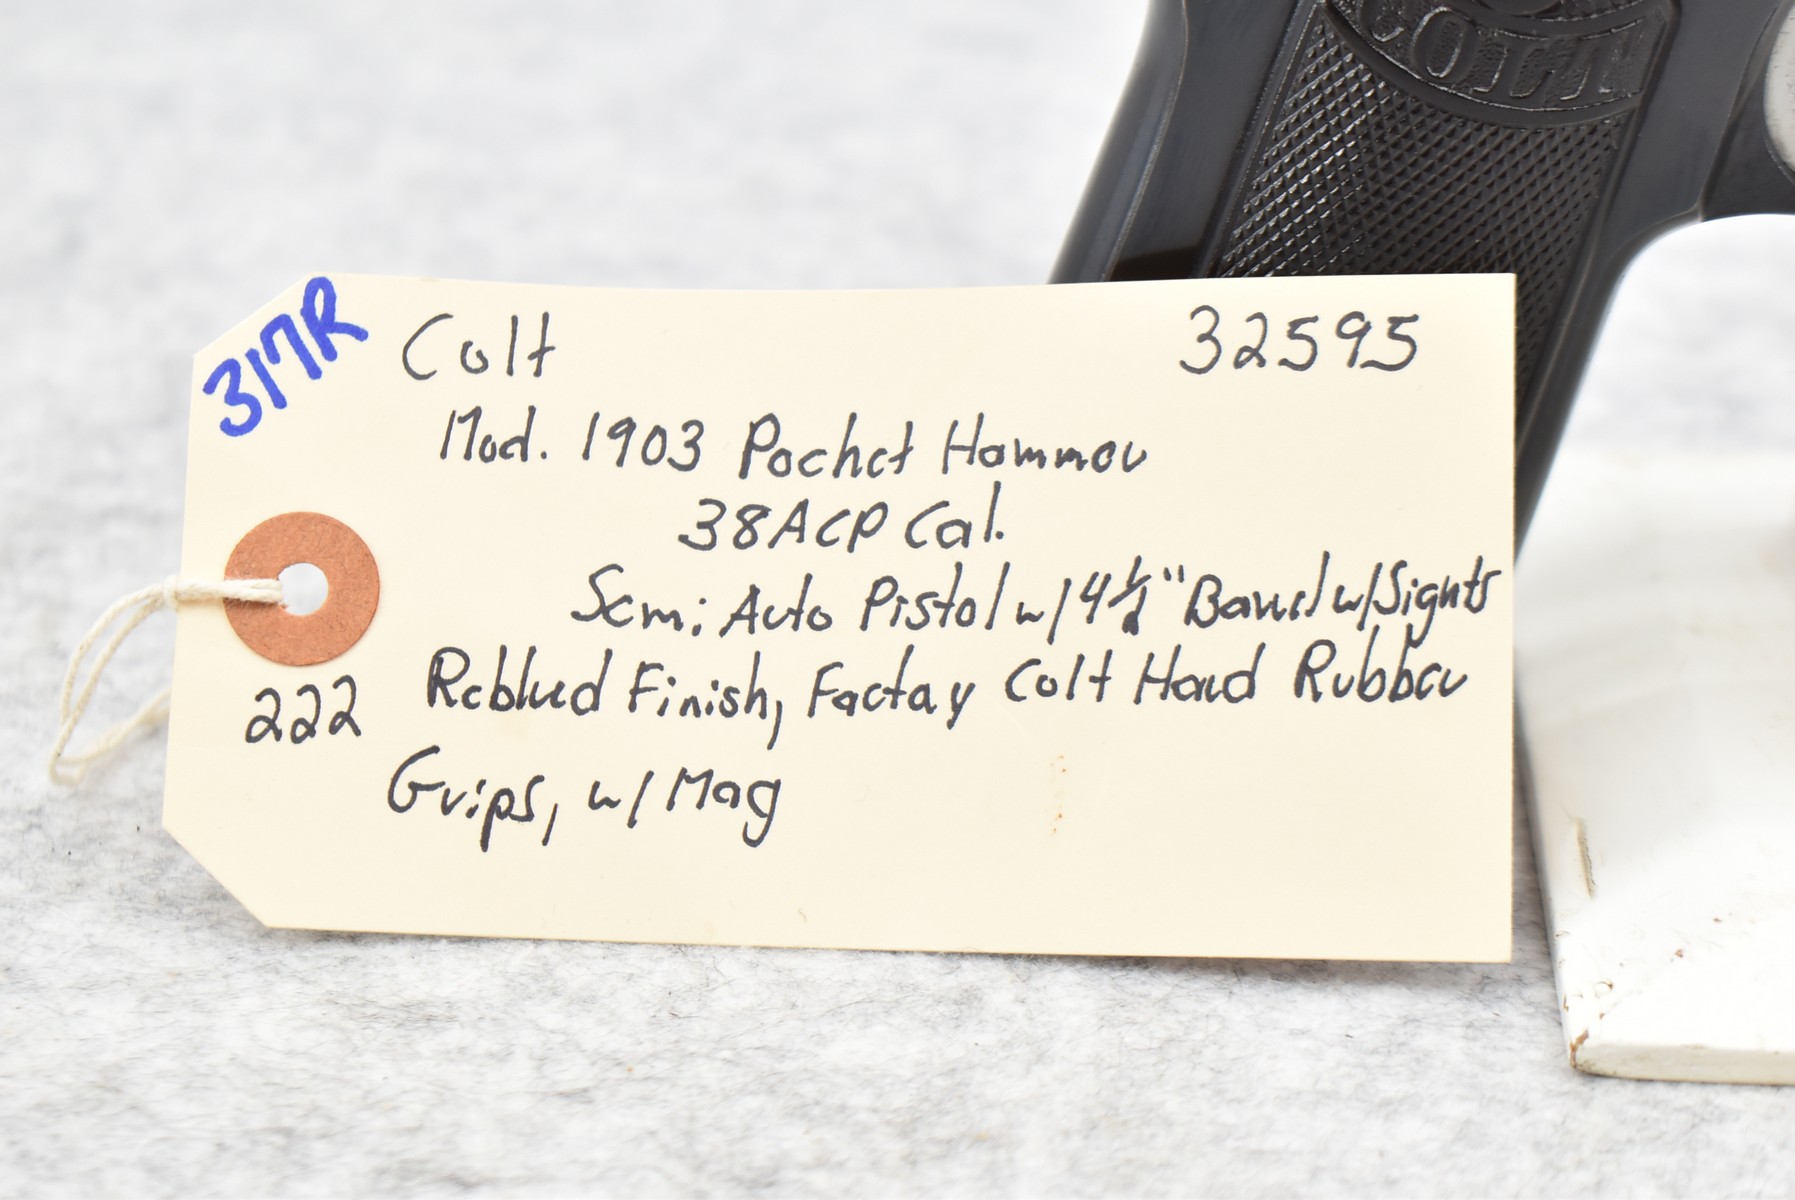 COLT
317R
Colt 32595
Mod. 1903 Pocket Hammer
38ACP Cal.
Semi Auto Pistol w/ 4½" Barrel w/Sights
Reblued Finish, Factory Colt Hard Rubber
222
Grips, w/ Mag